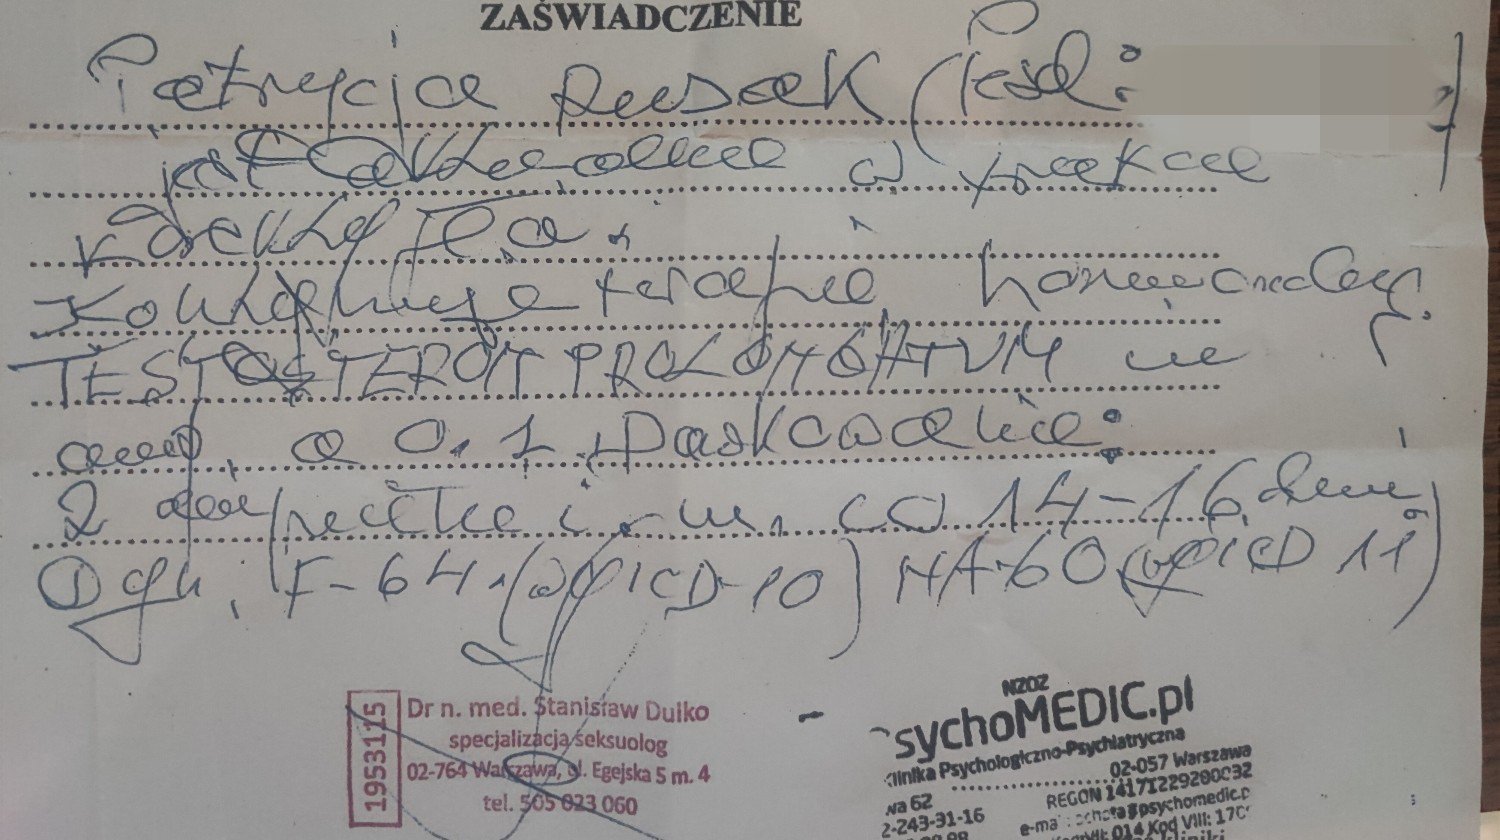 ZAŚWIADCZENIE
Patrycja Rusak (Pesel:
jest aktualnie w trakcie
korekty płci.
Kontynuuje terapię hormonalną
TESTOSTERON PROLONGATUM
amp. a 0.1
2 ampułki i.m. co 14-16 dni
Dgn. F-64. (wg ICD-10) HA-60 (wg ICD 11)
1953115
Dr n. med. Stanisław Dulko
specjalizacja seksuolog
02-764 Warszawa, ul. Egejska 5 m. 4
tel. 505 023 060
NZOZ
sychoMEDIC.pl
linika Psychologiczno-Psychiatryczna
wa 62 02-057 Warszawa
2-243-31-16 REGON 14171229200032
psychomedic.p
014 Kod VIII: 170